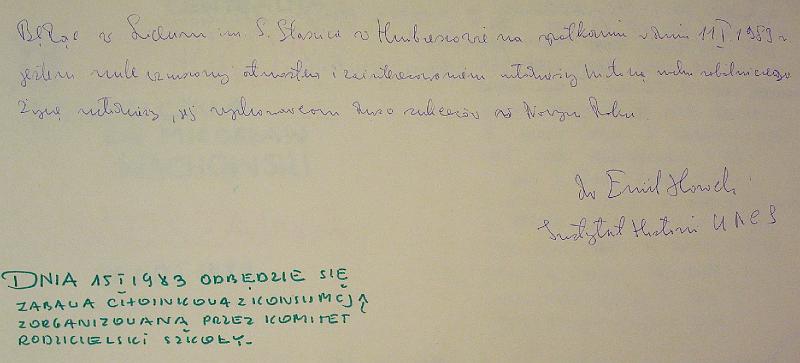 Będąc w Liceum im. S. Staszica w Hrubieszowie na spotkaniu w dniu 11 I 1983 r
jestem mile wzruszony atmosferą i zainteresowaniem młodzieży historią ruchu robotniczego
Życzę młodzieży, jej wychowawcom dużo sukcesów w Nowym Roku
dr Emil Horoch
Instytut Historii UMCS
DNIA 15 I 1983 ODBĘDZIE SIĘ
ZABAWA CHOINKOWA Z KONSUMCJĄ
ZORGANIZOWANA PRZEZ KOMITET
RODZICIELSKI SZKOŁY.